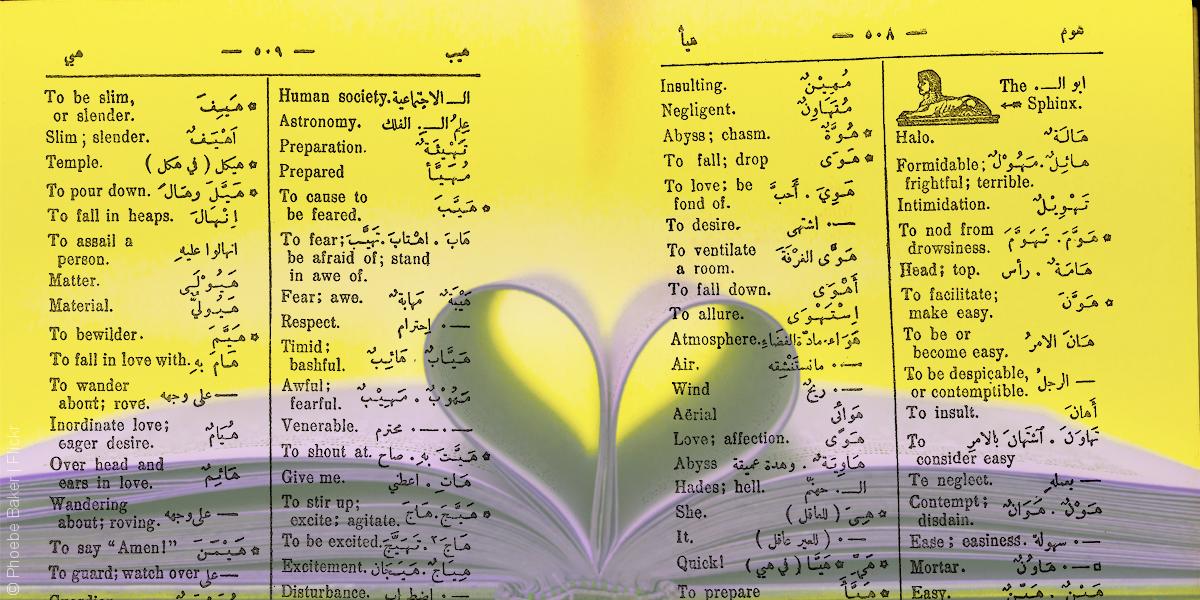 هيأ — ٥٠٨ — هوم
The ابو الـ.—
Sphinx.
Halo. هَالَةٌ
Formidable; هائِلٌ. مَهُولٌ
frightful; terrible.
Intimidation. تَهْوِيلٌ
To nod from هَوَّمَ. تَهَوَّمَ *
drowsiness.
Head; top. هَامَةٌ. رأس
To facilitate; هَوَّنَ *
make easy.
To be or هَانَ الامرُ
become easy.
To be despicable, — الرجلُ
or contemptible.
To insult. أَهانَ
To تَهاوَنَ. اسْتَهَانَ بالامرِ
consider easy
To neglect. — بعمله
Contempt; هَوْنٌ. هَوَانٌ
disdain.
Ease; easiness. —. سهولة
Mortar. هاوُنٌ
Easy. هَيْنٌ. هَيِّنٌ
Insulting. مُهِيْنٌ
Negligent. مُتَهَاوِنٌ
Abyss; chasm. هُوَّةٌ *
To fall; drop هَوَى *
To love; be هَوِيَ. أَحبَّ
fond of.
To desire. —. اشتهى
To ventilate هَوَّى الغرْفَةَ
a room.
To fall down. أَهْوَى
To allure. اِسْتَهْوَى
Atmosphere. هَوَاء. مادّة الفضاء
Air. —. مانستنْشِقه
Wind —. ريحٌ
Aërial هَوَائي
Love; affection. هَوًى
Abyss هَاوِيَة. وهدة عميقة
Hades; hell. الـ. جهنّم
She. هِيَ (للعاقل) *
It. —. (للغير عاقل)
Quick! هَيَّ * هَيَّا (في هيي) *
To prepare هَيَّأَ *
هيي — ٥٠٩ — هيب
Human society. الـ الاجتماعية
Astronomy. عِلمُ الـ. الفلك
Preparation. تَهْيِئَةٌ
Prepared مُهَيَّأ
To cause to هَيَّبَ *
be feared.
To fear; هَابَ. اهْتابَ. تَهَيَّبَ
be afraid of; stand
in awe of.
Fear; awe. هَيْبَةٌ. مَهابَةٌ
Respect. —. إحترام
Timid; هَيَّابٌ. هَائِبٌ
bashful.
Awful; مَهُوْبٌ. مَهِيْبٌ
fearful.
Venerable. —.—. محترم
To shout at. هَيَّتَ بِهِ. صاح *
Give me. هَاتِ. اعطني
To stir up; هَيَّجَ. هَاجَ *
excite; agitate.
To be excited. هَاجَ٢. تَهَيَّجَ
Excitement. هِيَاجٌ. هَيَجَان
Disturbance. —. اضطراب
To be slim, هَيِفَ *
or slender.
Slim; slender. أَهْيَفٌ
Temple. هيكل (في هكل) *
To pour down. هَيَّلَ وهَالَ *
To fall in heaps. اِنْهَالَ
To assail a انهالوا عليهِ
person.
Matter. هَيُوْلَى
Material. هَيُوليٌّ
To bewilder. هَيَّمَ *
To fall in love with. هَامَ بِهِ
To wander — على وجهه
about; rove.
Inordinate love; هُيَامٌ
eager desire.
Over head and هَائِمٌ
ears in love.
Wandering — على وجهه
about; roving.
To say "Amen!" هَيْمَنَ *
To guard; watch over — على
Guardian
© Phoebe Baker | Flickr